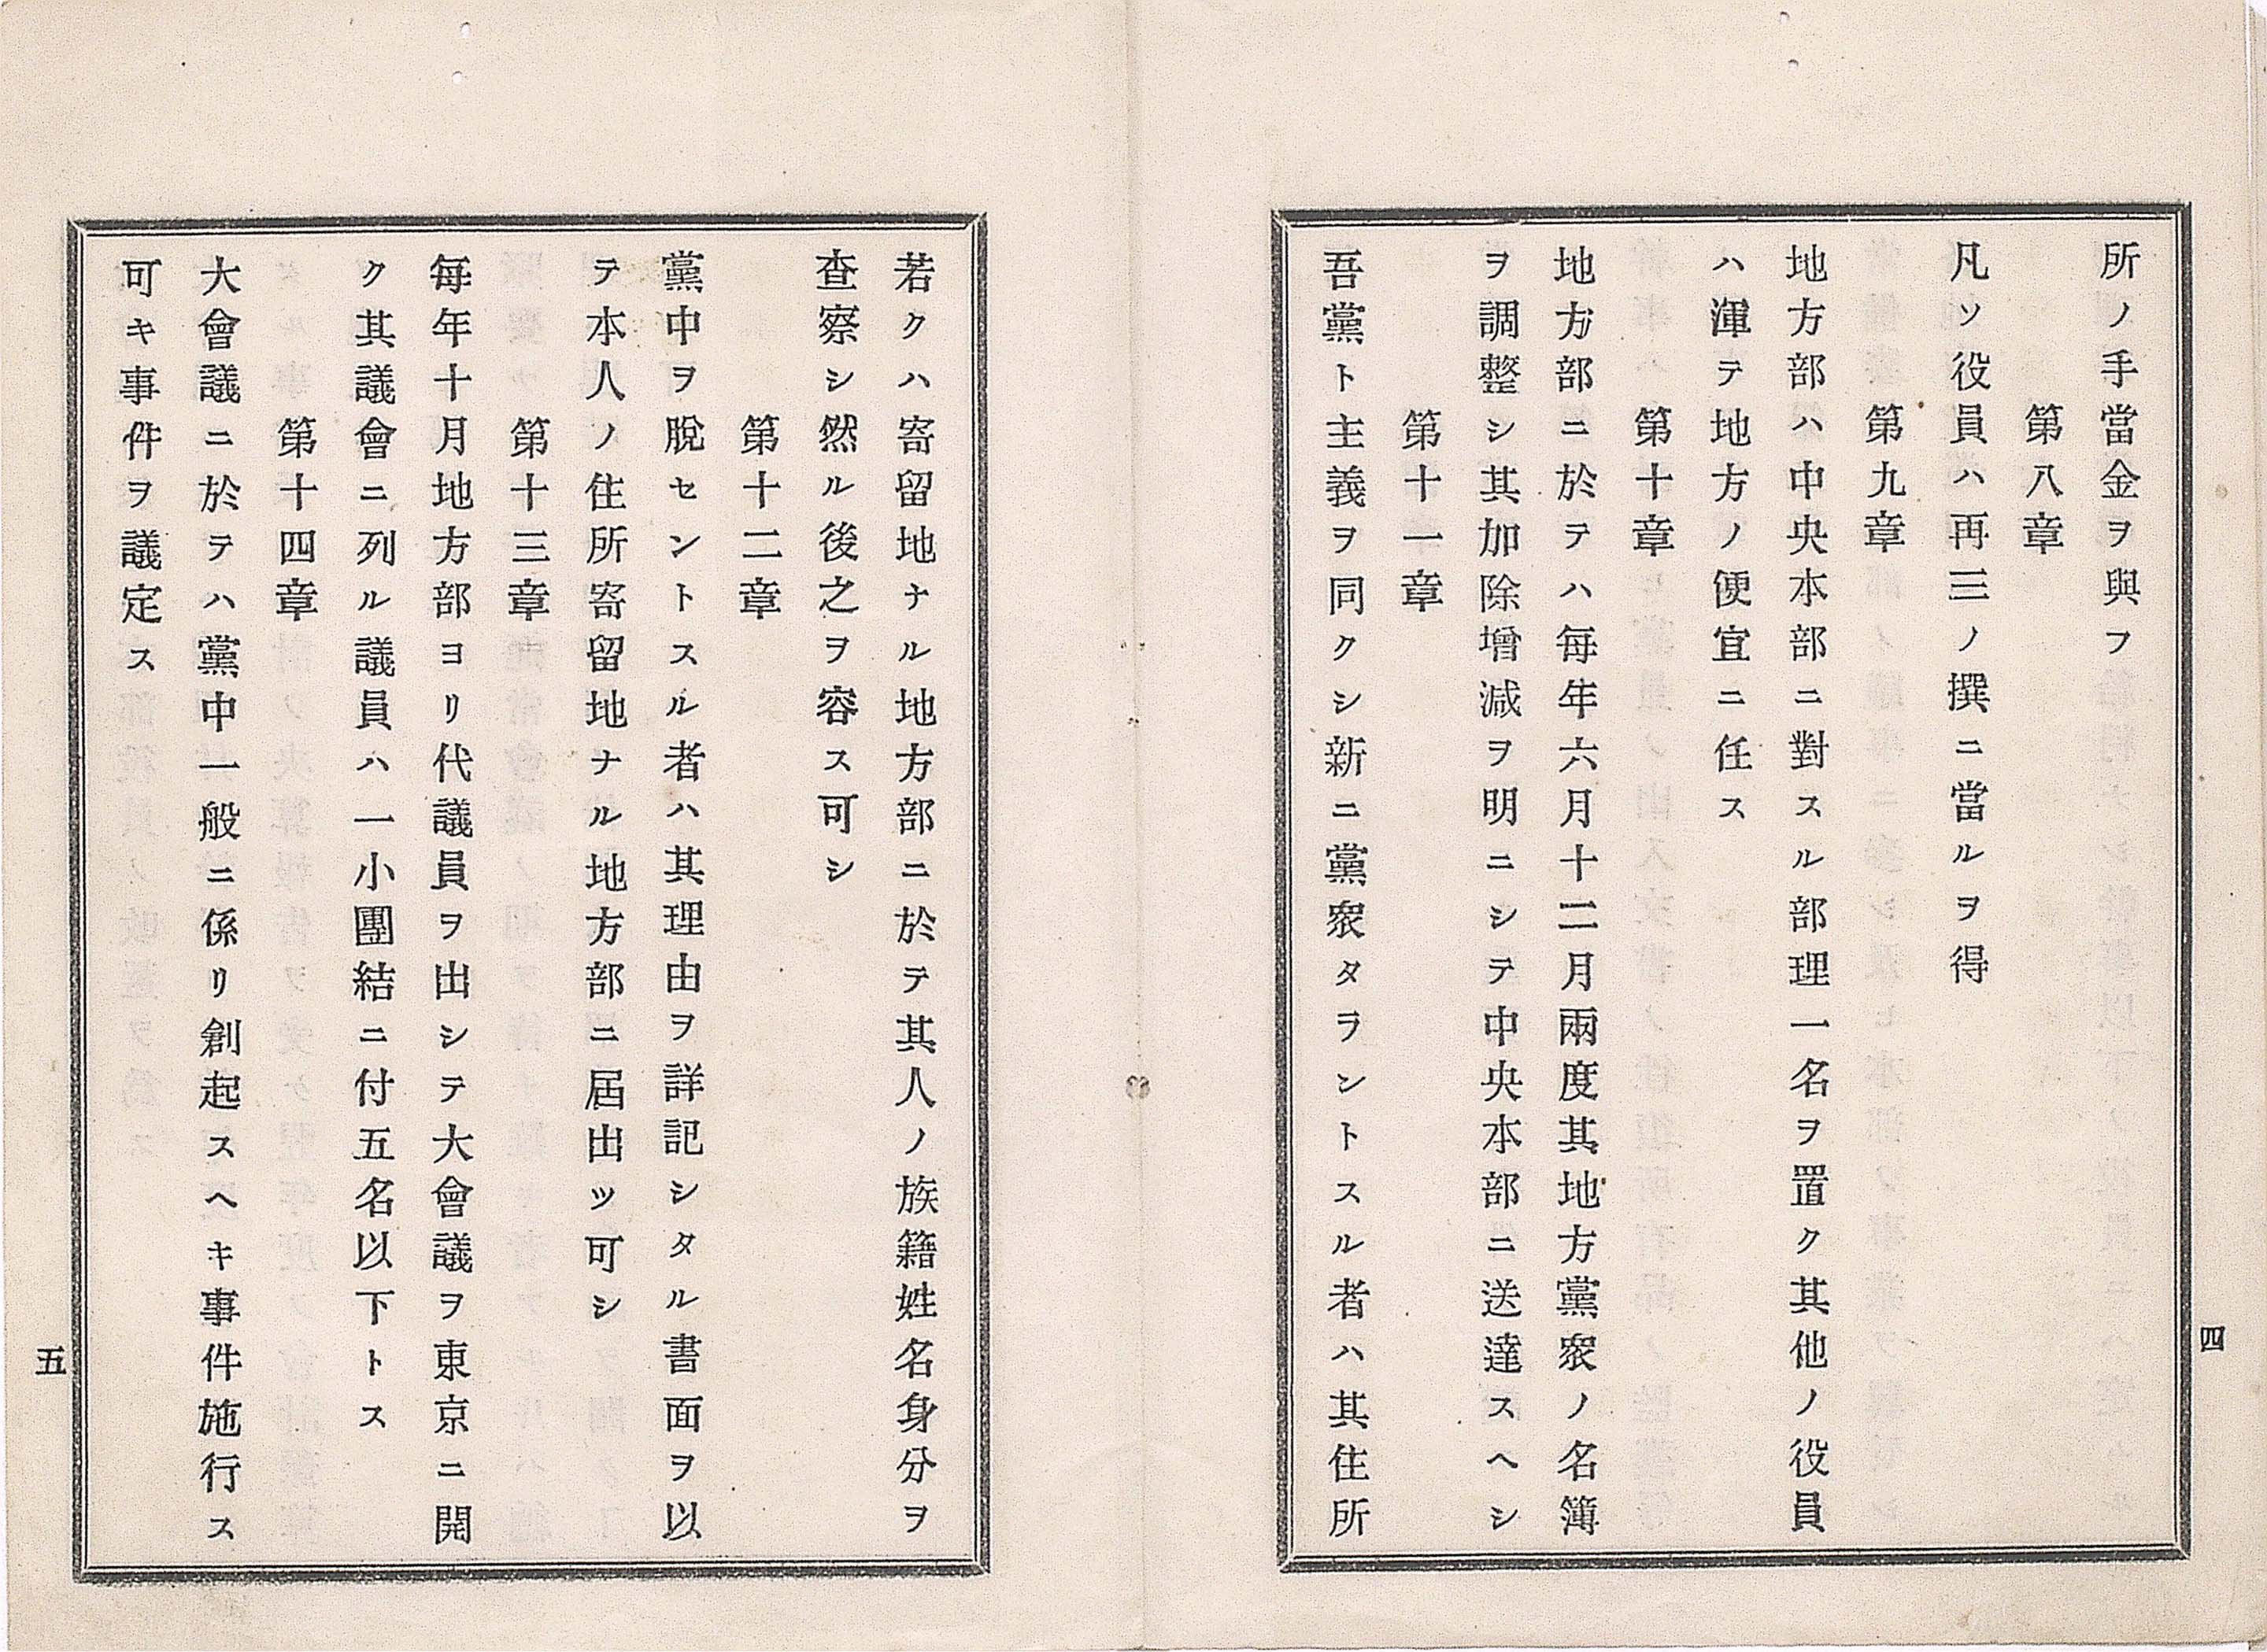 所ノ手當金ヲ與フ
第八章
凡ソ役員ハ再三ノ撰ニ當ルヲ得
第九章
地方部ハ中央本部ニ對スル部理一名ヲ置ク其他ノ役員
ハ渾テ地方ノ便宜ニ任ス
第十章
地方部ニ於テハ每年六月十二月兩度其地方黨衆ノ名簿
ヲ調整シ其加除增減ヲ明ニシテ中央本部ニ送達スヘシ
第十一章
吾黨ト主義ヲ同クシ新ニ黨衆タラントスル者ハ其住所
四
若クハ寄留地ナル地方部ニ於テ其人ノ族籍姓名身分ヲ
查察シ然ル後之ヲ容ス可シ
第十二章
黨中ヲ脫セントスル者ハ其理由ヲ詳記シタル書面ヲ以
テ本人ノ住所寄留地ナル地方部ニ屆出ツ可シ
第十三章
每年十月地方部ヨリ代議員ヲ出シテ大會議ヲ東京ニ開
ク其議會ニ列ル議員ハ一小團結ニ付五名以下トス
第十四章
大會議ニ於テハ黨中一般ニ係リ創起スヘキ事件施行ス
可キ事件ヲ議定ス
五